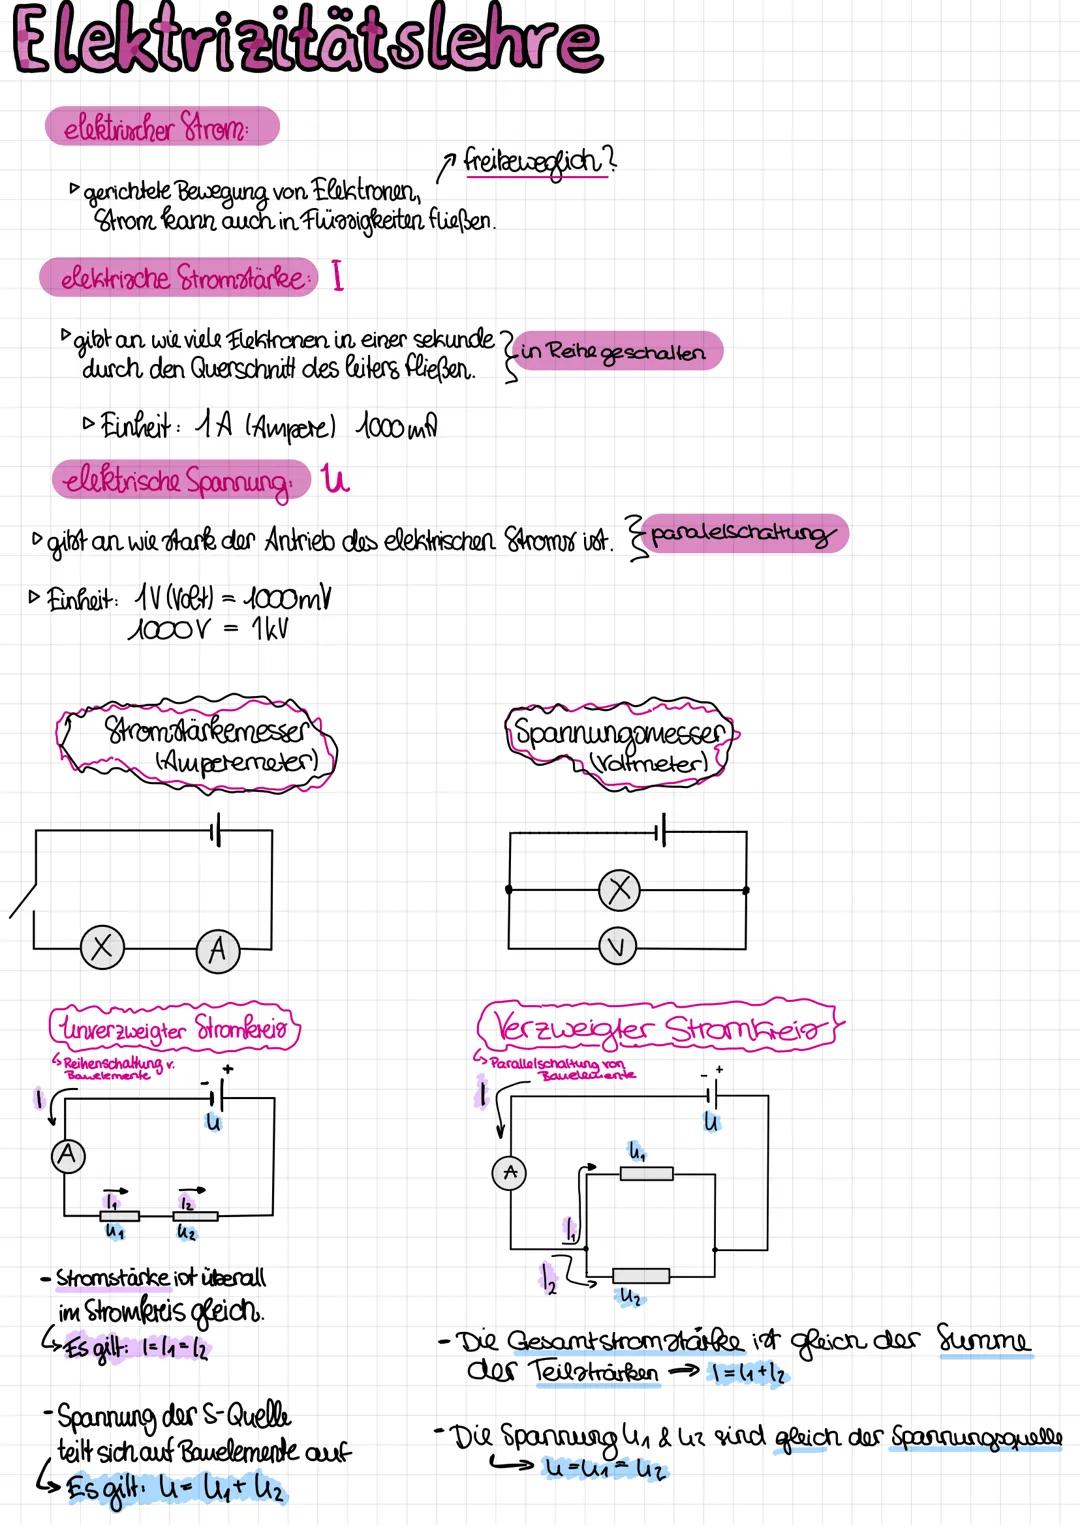 Elektrizitätslehre
elektrischer Strom:
↗ freibeweglich?
▹ gerichtete Bewegung von Elektronen,
Strom kann auch in Flüssigkeiten fließen.
elektrische Stromstärke: I
▹ gibt an wie viele Elektronen in einer sekunde
durch den Querschnitt des leiters fließen.
in Reihe geschalten
▹ Einheit: 1A (Ampere) 1000mA
elektrische Spannung: U
▹ gibt an wie stark der Antrieb des elektrischen Stroms ist.
paralelschaltung
▹ Einheit: 1V (Volt) = 1000mV
1000V = 1kV
Stromstärkemesser
(Amperemeter)
Spannungsmesser
(Voltmeter)
X A
X
V
Unverzweigter Stromkreis
↳ Reihenschaltung v.
Bauelemente
- +
I
U
A
I₁ I₂
U₁ U₂
- Stromstärke ist überall
im Stromkreis gleich.
↳ Es gilt: I=I₁=I₂
- Spannung der S-Quelle
teilt sich auf Bauelemente auf
↳ Es gilt: U=U₁+U₂
Verzweigter Stromkreis
↳ Parallelschaltung von
Bauelemente
- +
I
U
A
U₁
I₁
I₂
U₂
- Die Gesamtstromstärke ist gleich der Summe
der Teilstärken → I=I₁+I₂
- Die Spannung U₁ & U₂ sind gleich der Spannungsquelle
↳ U=U₁=U₂